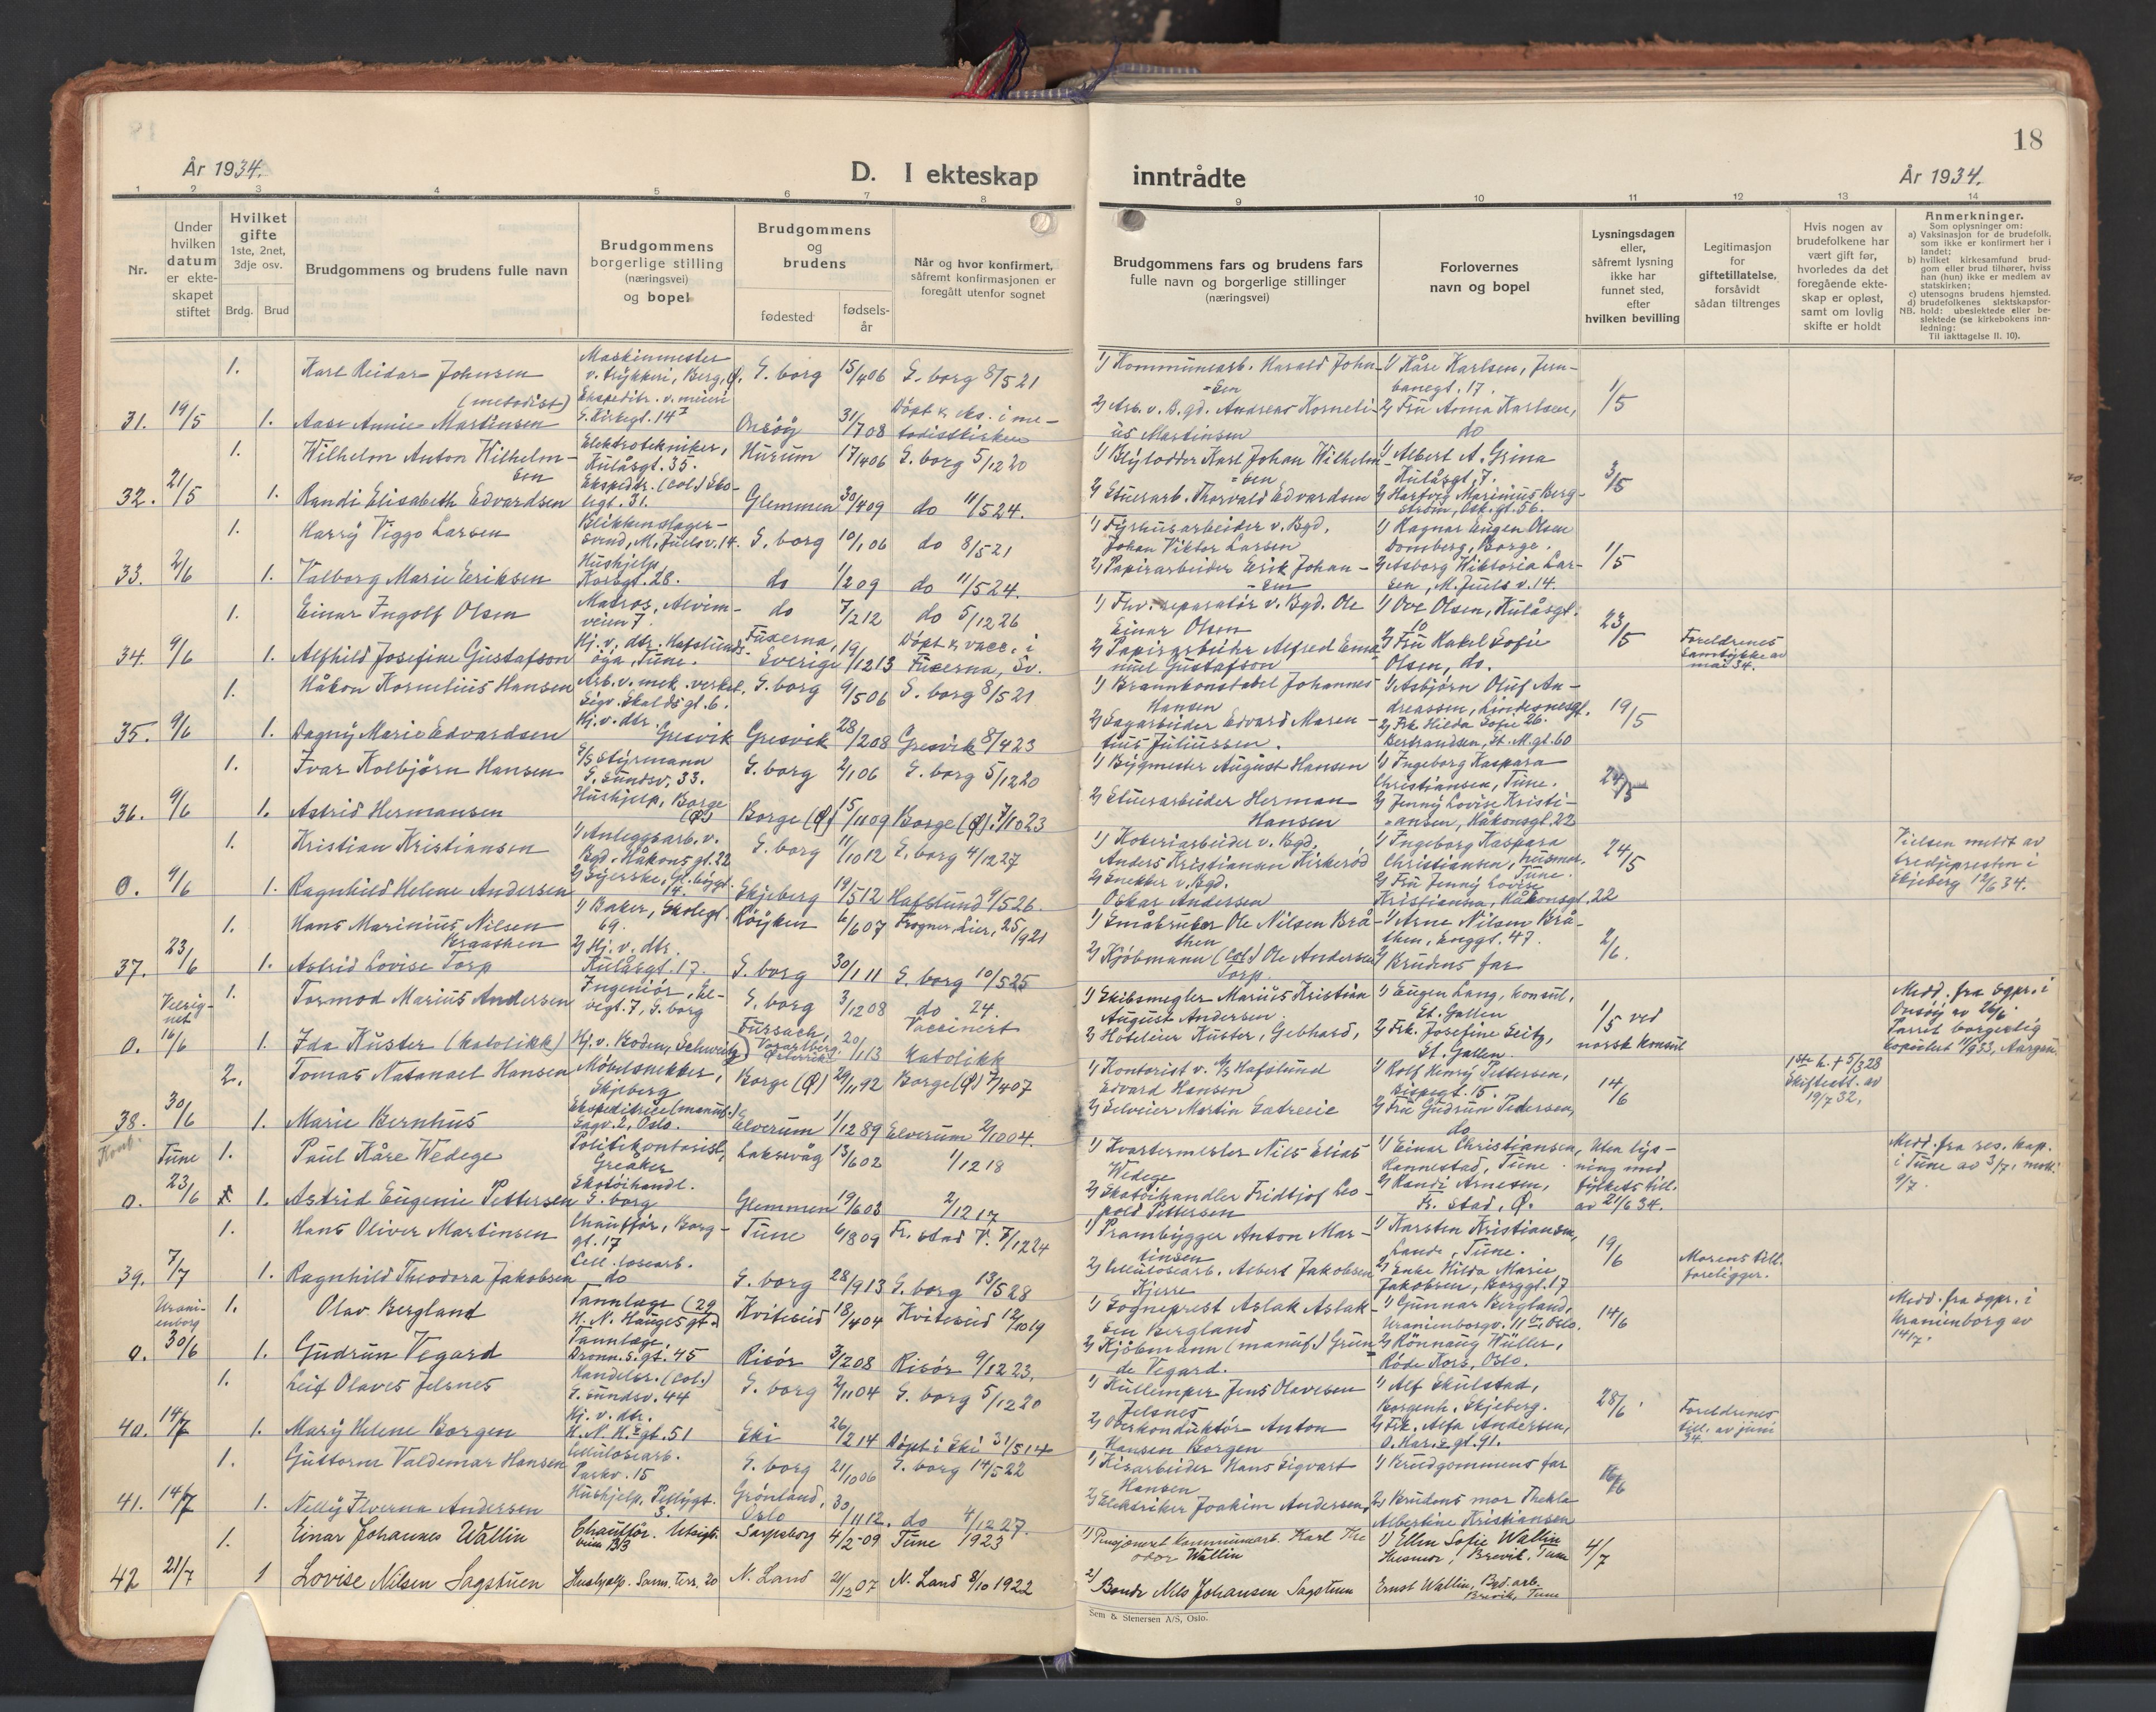 18
År 1934.
D. I ekteskap inntrådte
År 1934.
1 2 3 4 5 6 7 8 9 10 11 12 13 14
Nr.
Under hvilken datum er ekteskapet stiftet
Hvilket gifte 1ste, 2net, 3dje osv.
Brdg. Brud
Brudgommens og brudens fulle navn
Brudgommens borgerlige stilling (næringsvei) og bopel
Brudgommens og brudens
fødested
fødsels-år
Når og hvor konfirmert, såfremt konfirmasjonen er foregått utenfor sognet
Brudgommens fars og brudens fars fulle navn og borgerlige stillinger (næringsvei)
Forlovernes navn og bopel
Lysningsdagen eller, såfremt lysning ikke har funnet sted, efter hvilken bevilling
Legitimasjon for giftetillatelse, forsåvidt sådan tiltrenges
Hvis nogen av brudefolkene har vært gift før, hvorledes da det foregående ekteskap er opløst, samt om lovlig skifte er holdt
Anmerkninger.
Som oplysninger om:
a) Vaksinasjon for de brudefolk, som ikke er konfirmert her i landet;
b) hvilket kirkesamfund brudgom eller brud tilhører, hviss han (hun) ikke er medlem av statskirken;
c) utensogns brudens hjemsted.
d) brudefolkenes slektskapsforhold: ubeslektede eller beslektede (se kirkebokens innledning:
NB. Til iakttagelse II. 10).
1. Karl Reidar Johnsen Maskinmester v. trykkeri, Berg, Ø. S. borg 15/4 06 S. borg 8/5 21 1) Kommunearb. Harald Johnsen 1) Kåre Karlsen, Jernbanegt. 17.
31. 19/5 1. Aase Annie Martinsen (metodist) Ekspeditr. v. meieri S. Kirkegt. 14 Onsöy 31/7 08 Döpt i metodistkirken 2) Arb. v. B.gd. Andreas Kornelius Martinsen 2) Fru Anna Karlsen, do 1/5
1. Wilhelm Anton Wilhelmsen Elektrotekniker, Kulåsgt. 35. Hurum 17/4 06 S. borg 5/12 20 1) Blylodder Karl Johan Wilhelmsen 1) Albert A. Grina Kulåsgt. 7.
32. 21/5 1. Randi Elisabeth Edvardsen Ekspeditr. (col.) Skolegt. 31. Glemmen 30/4 09 do 11/5 24. 2) Stuerarb. Thorvald Edvardsen 2) Hartvig Marinius Bergström, Osk. gt. 56. 3/5
1. Harry Viggo Larsen Blikkenslagersvend, M. Juels v. 14. S. borg 10/1 06 do 8/5 21 1) Fyrhusarbeider v. Bgd. Johan Viktor Larsen 1) Ragnar Eugen Olsen Domberg, Borge.
33. 2/6 1. Valborg Marie Eriksen Hushjelp, Korsgt. 28. do 1/2 09 do 11/5 24. 2) Papirarbeider Erik Johansen 2) Aasborg Viktoria Larsen, M. Juels v. 14. 1/5
1. Einar Ingolf Olsen Matros, Alvimveien 7. do 7/2 12 do 5/12 26 1) Fhv. reparatör v. Bgd. Ole Einar Olsen 1) Ove Olsen, Kulåsgt. 10
34. 9/6 1. Alfhild Josefine Gustafson Hj. v. dtr. Hafslundsöya, Tune. Fuxerna, Sverige 19/12 13 Döpt & vacc. i Fuxerna, Sv. 2) Papirarbeider Alfred Emanuel Gustafson 2) Fru Rakel Sofie Olsen, do. 23/5 Foreldrenes samtykke av mai 34.
1. Håkon Kornelius Hansen Arb. v. mek. verksted, Sigv. Skaldsgt. 6. S. borg 9/5 06 S. borg 8/5 21 1) Brannkonstabel Johannes Hansen 1) Asbjörn Oluf Andreassen, Lindesnesgt. 26.
35. 9/6 1. Dagny Marie Edvardsen Hj. v. dtr. Gresvik Gresvik 28/2 08 Gresvik 8/4 23 2) Sagarbeider Edvard Marentius Juliussen. 2) Frk. Hilda Sofie Bertrandsen, St. M. gt. 60 19/5
1. Ivar Kolbjörn Hansen Styrmann S. Sundsv. 33. S. borg 2/1 06 S. borg 5/12 20 1) Bygmester August Hansen 1) Ingeborg Kaspara Christiansen, Tune.
36. 9/6 1. Astrid Hermansen Hushjelp, Borge (Ø) Borge (Ø) 15/11 09 Borge (Ø) 7/10 23 2) Stuerarbeider Herman Hansen 2) Jenny Lovise Kristiansen, Håkonsgt. 22 24/5
1. Kristian Kristiansen 1) Anleggsarb. v. Bgd. Håkons gt. 22 S. borg 11/10 12 S. borg 4/12 27 1) Kokeriarbeider v. Bgd. Anders Kristiansen Kirkeröd 1) Ingeborg Kaspara Christiansen, husmor, Tune.
0. 9/6 1. Ragnhild Helene Andersen 2) Syerske, 14. Skjeberg 19/5 12 Hafslund 9/5 26. 2) Snekker v. Bgd. Oskar Andersen 2) Fru Jenny Lovise Kristiansen, Håkonsgt. 22 24/5 Vielsen meldt av tredjepresten i Skjeberg 12/6 34.
1. Hans Marinius Nilsen Braathen 1) Baker, Skolegt. 69. Röyken 6/6 07 Frogner, Lier, 25/9 21 1) Småbruker Ole Nilsen Bråthen 1) Arne Nilsen Bråthen, Enggt. 47.
37. 23/6 1. Astrid Lovise Torp 2) Hj. v. dtr. Kulåsgt. 17. S. borg 30/1 11 S. borg 10/5 25 2) Kjöbmann (col.) Ole Andersen Torp. 2) Brudens far 2/6.
Velsignet 1. Tormod Marius Andersen Ingeniör, Elvegt. 7, S. borg S. borg 3/12 08 do 24. Vaccinert 1) Skibsmegler Marius Kristian August Andersen. 1) Eugen Lang, konsul, St. Gallen
0. 16/6 1. Ida Kuster (katolikk) Hj. v. Boden, Schweitz Fursach, Vorarlberg, Österrike 20/1 13 Katolikk 2) Hoteleier Kuster, Gebhard, 2) Frk. Josefine Seitz, St. Gallen. 1/5 ved norsk konsul Medd. fra sgpr. i Onsöy av 26/6. Parret borgerlig kopulert 11/9 33, Aargau.
2. Tomas Natanael Hansen Möbelsnekker, Skjeberg Borge (Ø) 29/11 92 Borge (Ø) 7/4 07 1) Kontorist v. A/S Hafslund Edvard Hansen 1) Rolf Henry Pettersen, Bispegt. 15. 1ste h. † 5/3 28 Skifteatt. av 19/7 32.
38. 30/6 1. Marie Bernhus Ekspeditrice (manuf.) Sagv. 2, Oslo. Elverum 1/12 89 Elverum 2/10 04. 2) Selveier Martin Sætreeie 2) Fru Gudrun Pedersen, do 14/6
Tune 1. Paul Kåre Wedege Politikontorist, Greåker Laksevåg 13/6 02 1/12 18 1) Kvartermester Nils Elias Wedege 1) Einar Christiansen, Rannestad, Tune.
0. 23/6 1. Astrid Eugenie Pettersen Skotöihandl. S. borg Glemmen 19/6 03 2/12 17 2) Skotöihandler Fridtjof Leopold Pettersen 2) Randi Arnesen, Fr. stad, Ø. Uten lysning med fylkets till. av 21/6 34. Medd. fra res. kap. i Tune av 3/7, mott. 9/7.
1. Hans Oliver Martinsen Chaufför, Borggt. 17 Tune 6/8 09 Fr. stad V. 7/12 24 1) Prambygger Anton Martinsen 1) Karsten Kristiansen, Lande, Tune.
39. 7/7 1. Ragnhild Theodora Jakobsen Cell.losearb. do S. borg 28/9 13 S. borg 13/5 28 2) Cellulosearb. Albert Jakobsen Kjerre 2) Enke Hilda Marie Jakobsen, Borggt. 17 19/6 Morens till. foreligger.
Uranienborg 1. Olav Bergland Tannlæge H. N. Hauges gt. 29 Kviteseid 18/4 04 Kviteseid 12/10 19 1) Sogneprest Aslak Aslaksen Bergland 1) Gunnar Bergland, Uranienborgv. 11, Oslo.
0. 30/6 1. Gudrun Vegard Tannlæge, Dronn. S. gt. 45 Risör 3/2 08 Risör 9/12 23. 2) Kjöbmann (manuf.) Grunde Vegard. 2) Rönnaug Wüller, Röde Kors, Oslo. 14/6 Medd. fra sgpr. i Uranienborg av 14/7.
1. Leif Olaves Jelsnes Handelsr. (col.) S. Sundsv. 44 S. borg 2/11 04 S. borg 5/12 20 1) Kullemper Jens Olavesen Jelsnes 1) Alf Skulstad, Borgenh., Skjeberg.
40. 14/7 1. Mary Helene Borgen Hj. v. dtr. H. N. H. gt. 51 Ski 26/2 14 Döpt i Ski 31/5 14 2) Overkonduktör Anton Hansen Borgen 2) Frk. Alfa Andersen, O. Har.s gt. 91. 28/6. Foreldrenes till. av juni 34.
1. Guttorm Valdemar Hansen Cellulosearb. Parkv. 15 S. borg 21/10 06 S. borg 14/5 22 1) Kisarbeider Hans Sigvart Hansen 1) Brudgommens far
41. 14/7 1. Nelly Iverna Andersen Hushjelp, 3. Grönland, Oslo 30/11 12. do 4/12 27. 2) Elektriker Joakim Andersen, 2) Brudens mor Thekla Albertine Kristiansen
1. Einar Johannes Wallin Chaufför. Sarpsborg 4/2-09 Tune 1923 1) Pensjonert kommunearb. Karl Theodor Wallin 1) Ellen Sofie Wallin Husmor, Brevik, Tune
42 21/7 1 Lovise Nilsen Sagstuen Hushjelp. Sann. Terr. 20 N. Land 21/12 07 N. Land 8/10 1922 2) Bonde Nils Johansen Sagstuen Ernst Wallin, Bgd. arb. Brevik, Tune 4/7
Sem & Stenersen A/S, Oslo.